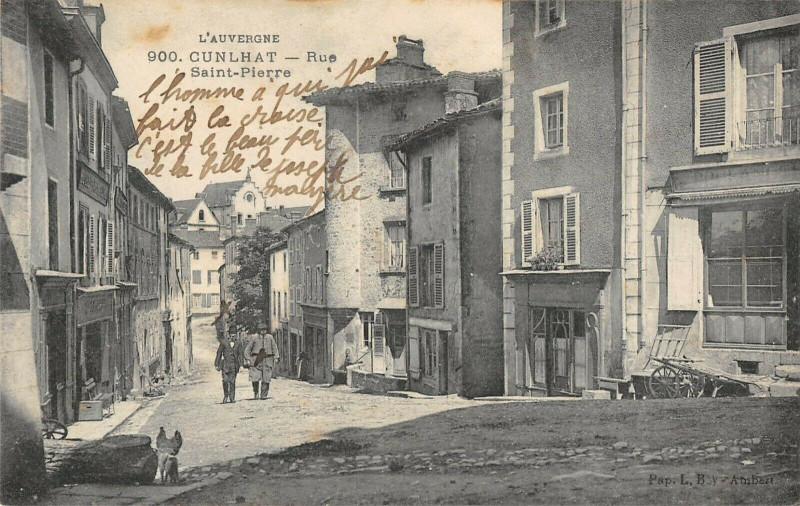 L'AUVERGNE
900. CUNLHAT — Rue
Saint-Pierre
l'homme a qui j'ai
fait la croise
c'est le beau père
de la fille de joseph